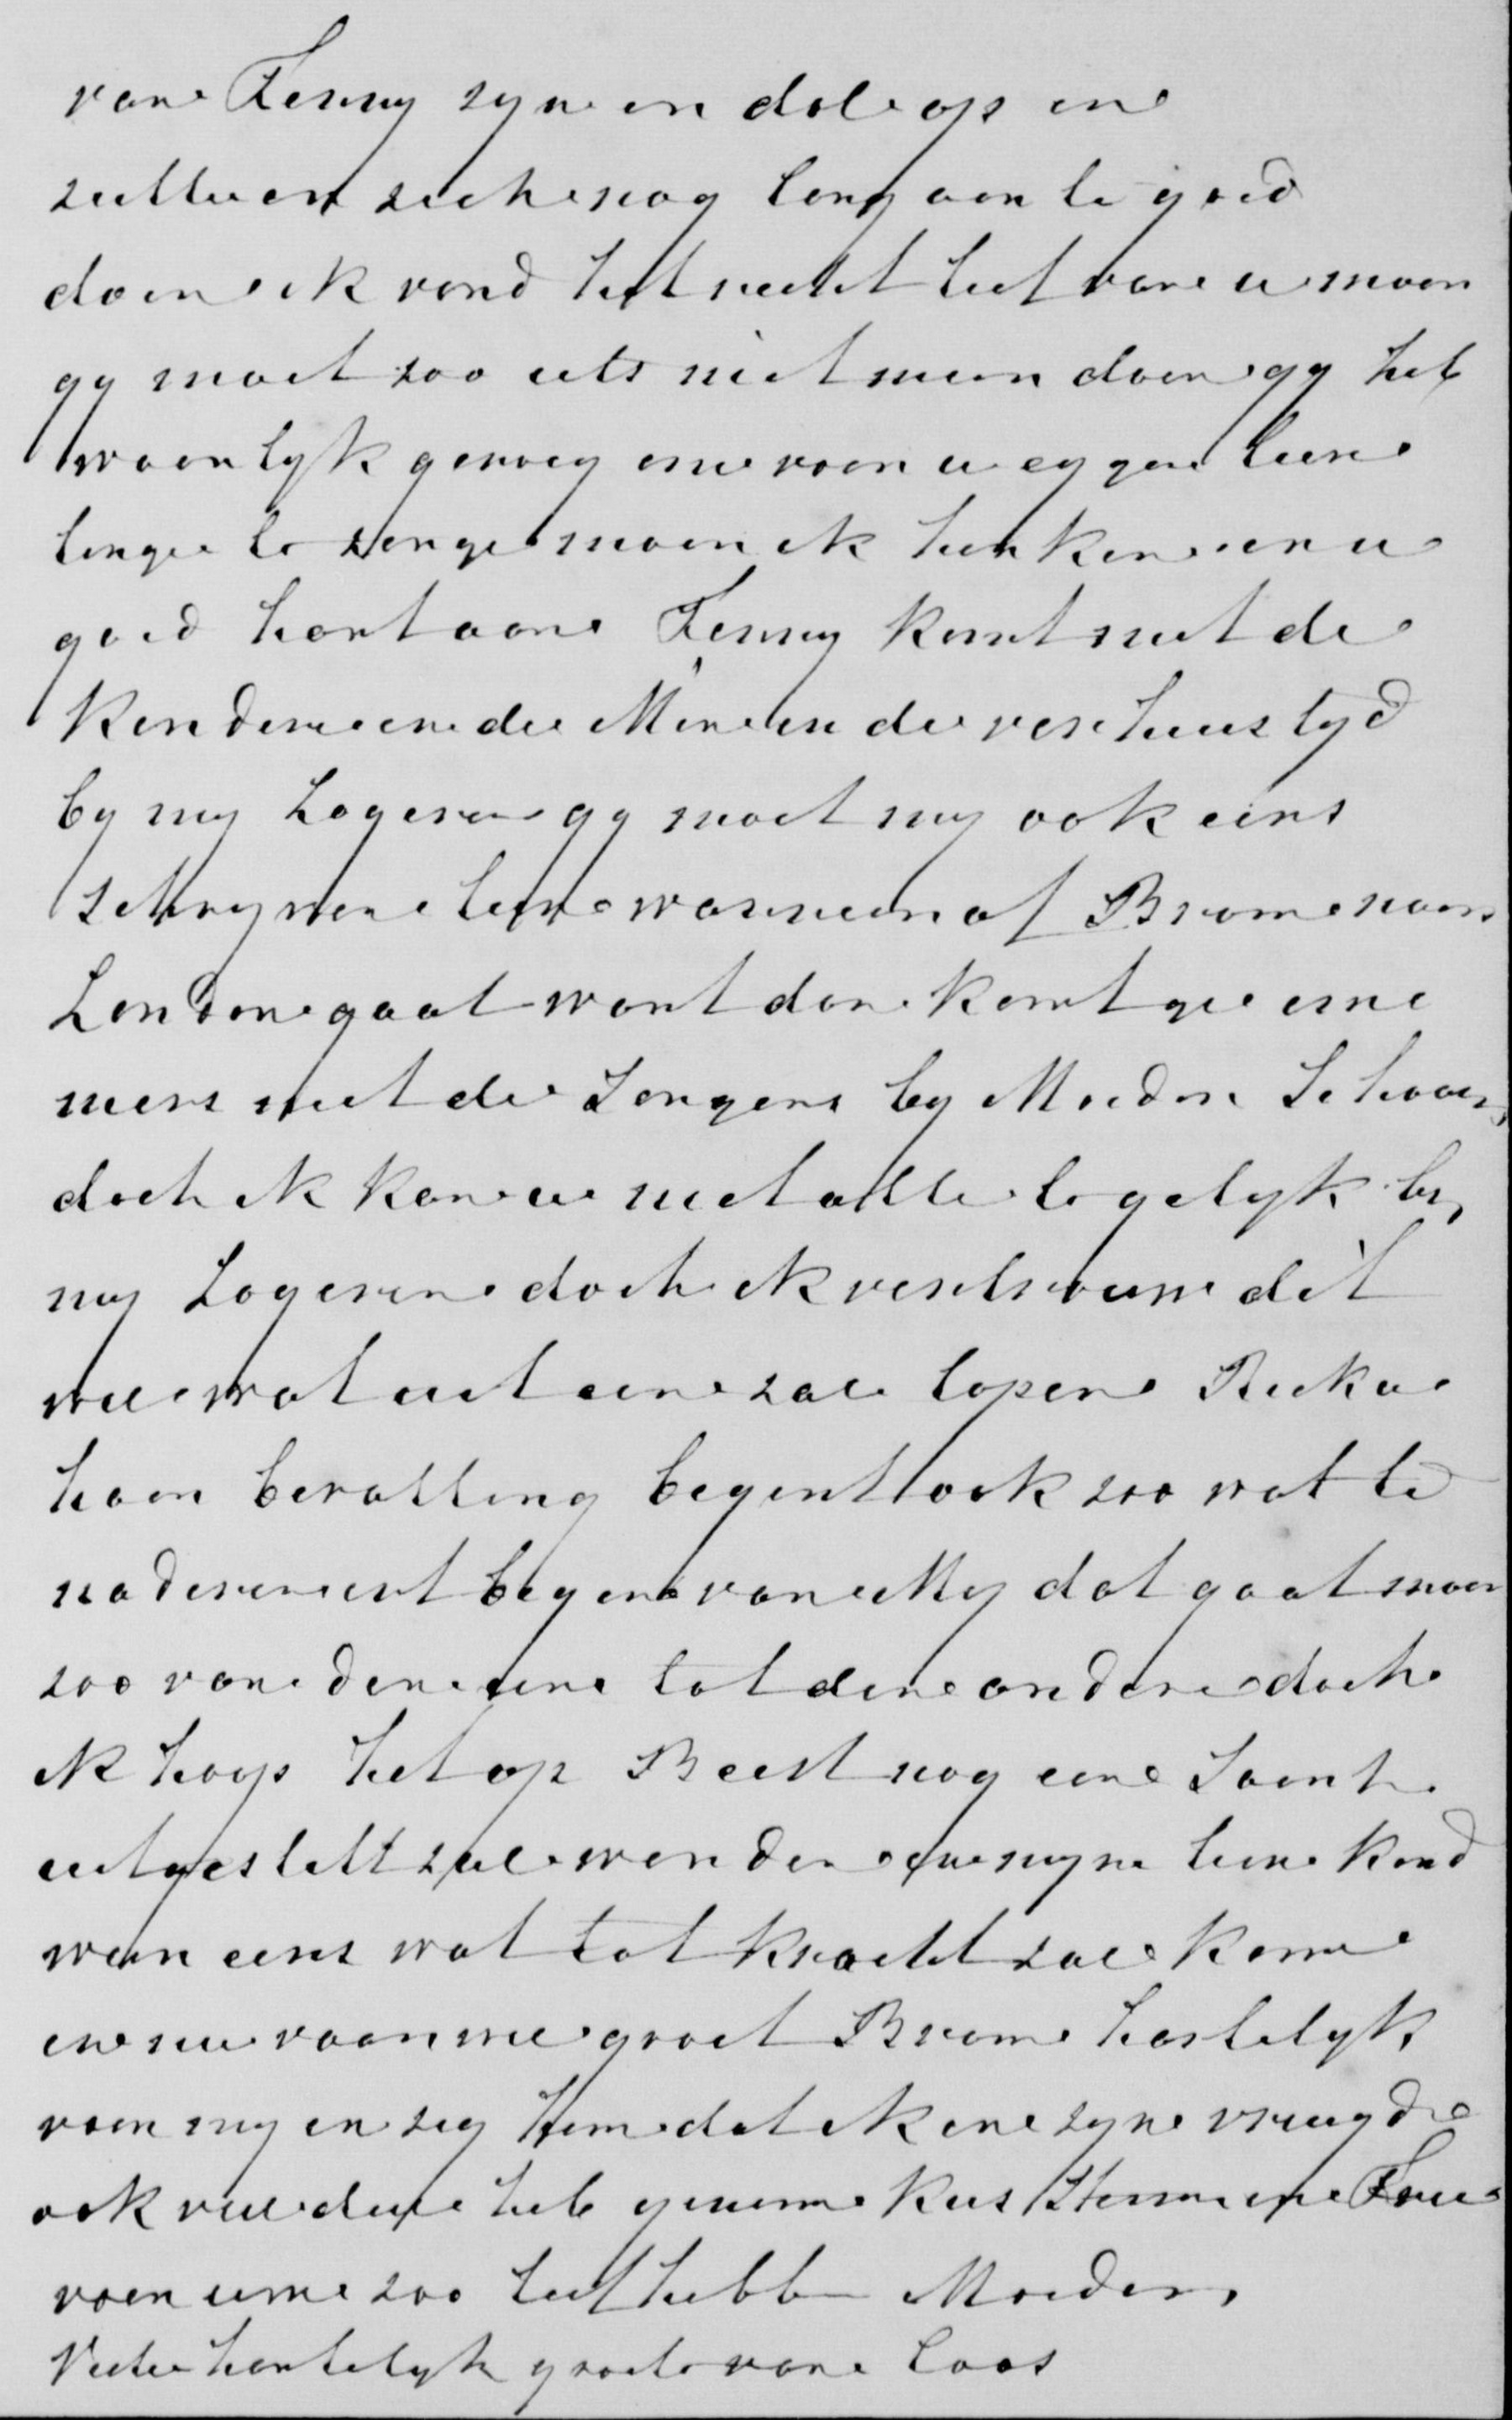 van Jenny zyn er dol op en
zulle er zich nog lang aan te goed
doen ik vond het recht lief van u maar
gy moet zoo iets niet meer doen gy heb
waarlyk genoeg om voor u eygen leve
linge te zorge maar ik herken er u
goed hart aan Jenny komt met de
kindere en de Min in de verhuis tyd
by my Logeren gy moet my ook eens
schryven lieve wanneer of Bram naar
London gaat want dan komt gie im
mers met de Jongens by Moeder Schoon
doch ik kan u niet alle te gelyk by
my Logeren doch ik vertrouw dit
wel wat uit een zal lopen Rika
haar bevalling begint ook zoo wat te
naderen int begin van Mey dat gaat maar
zoo van den een tot den ander doch
ik hoop het op Beest nog een Jaartje
uitgestelt zal worden en myn lieve kind
weer eens wat tot kracht zal kome
en nu vaarwel groet Bram hartelyk
voor my en zeg hem dat ik in zyn vreugde
ook veel deel heb genome kus Herman en Free
voor um zoo lief hebb Moeder
Vele hartelyk groete van Coos